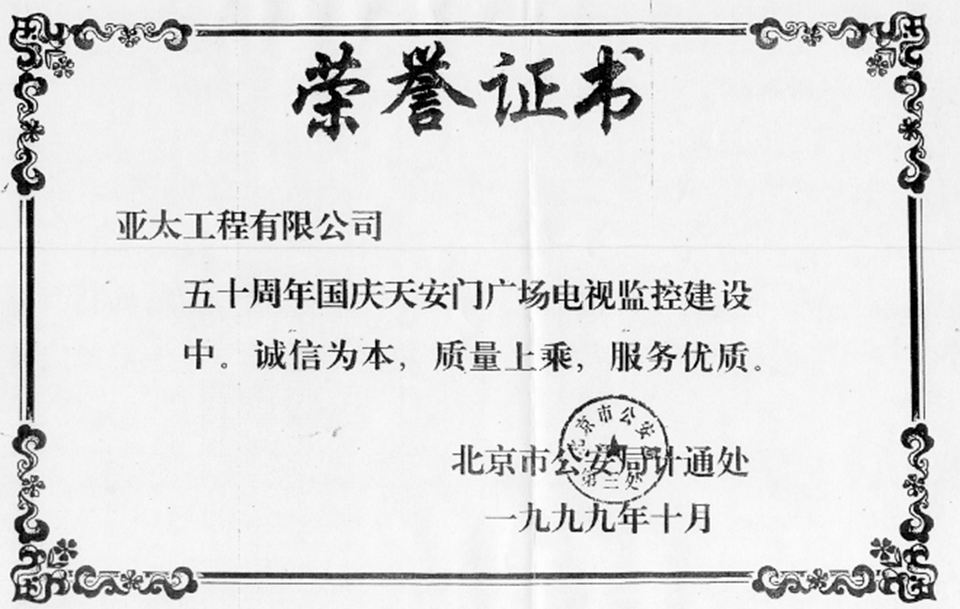 荣誉证书
亚太工程有限公司
五十周年国庆天安门广场电视监控建设
中。诚信为本，质量上乘，服务优质。
北京市公安局计通处
北京市公安
第三处
一九九九年十月